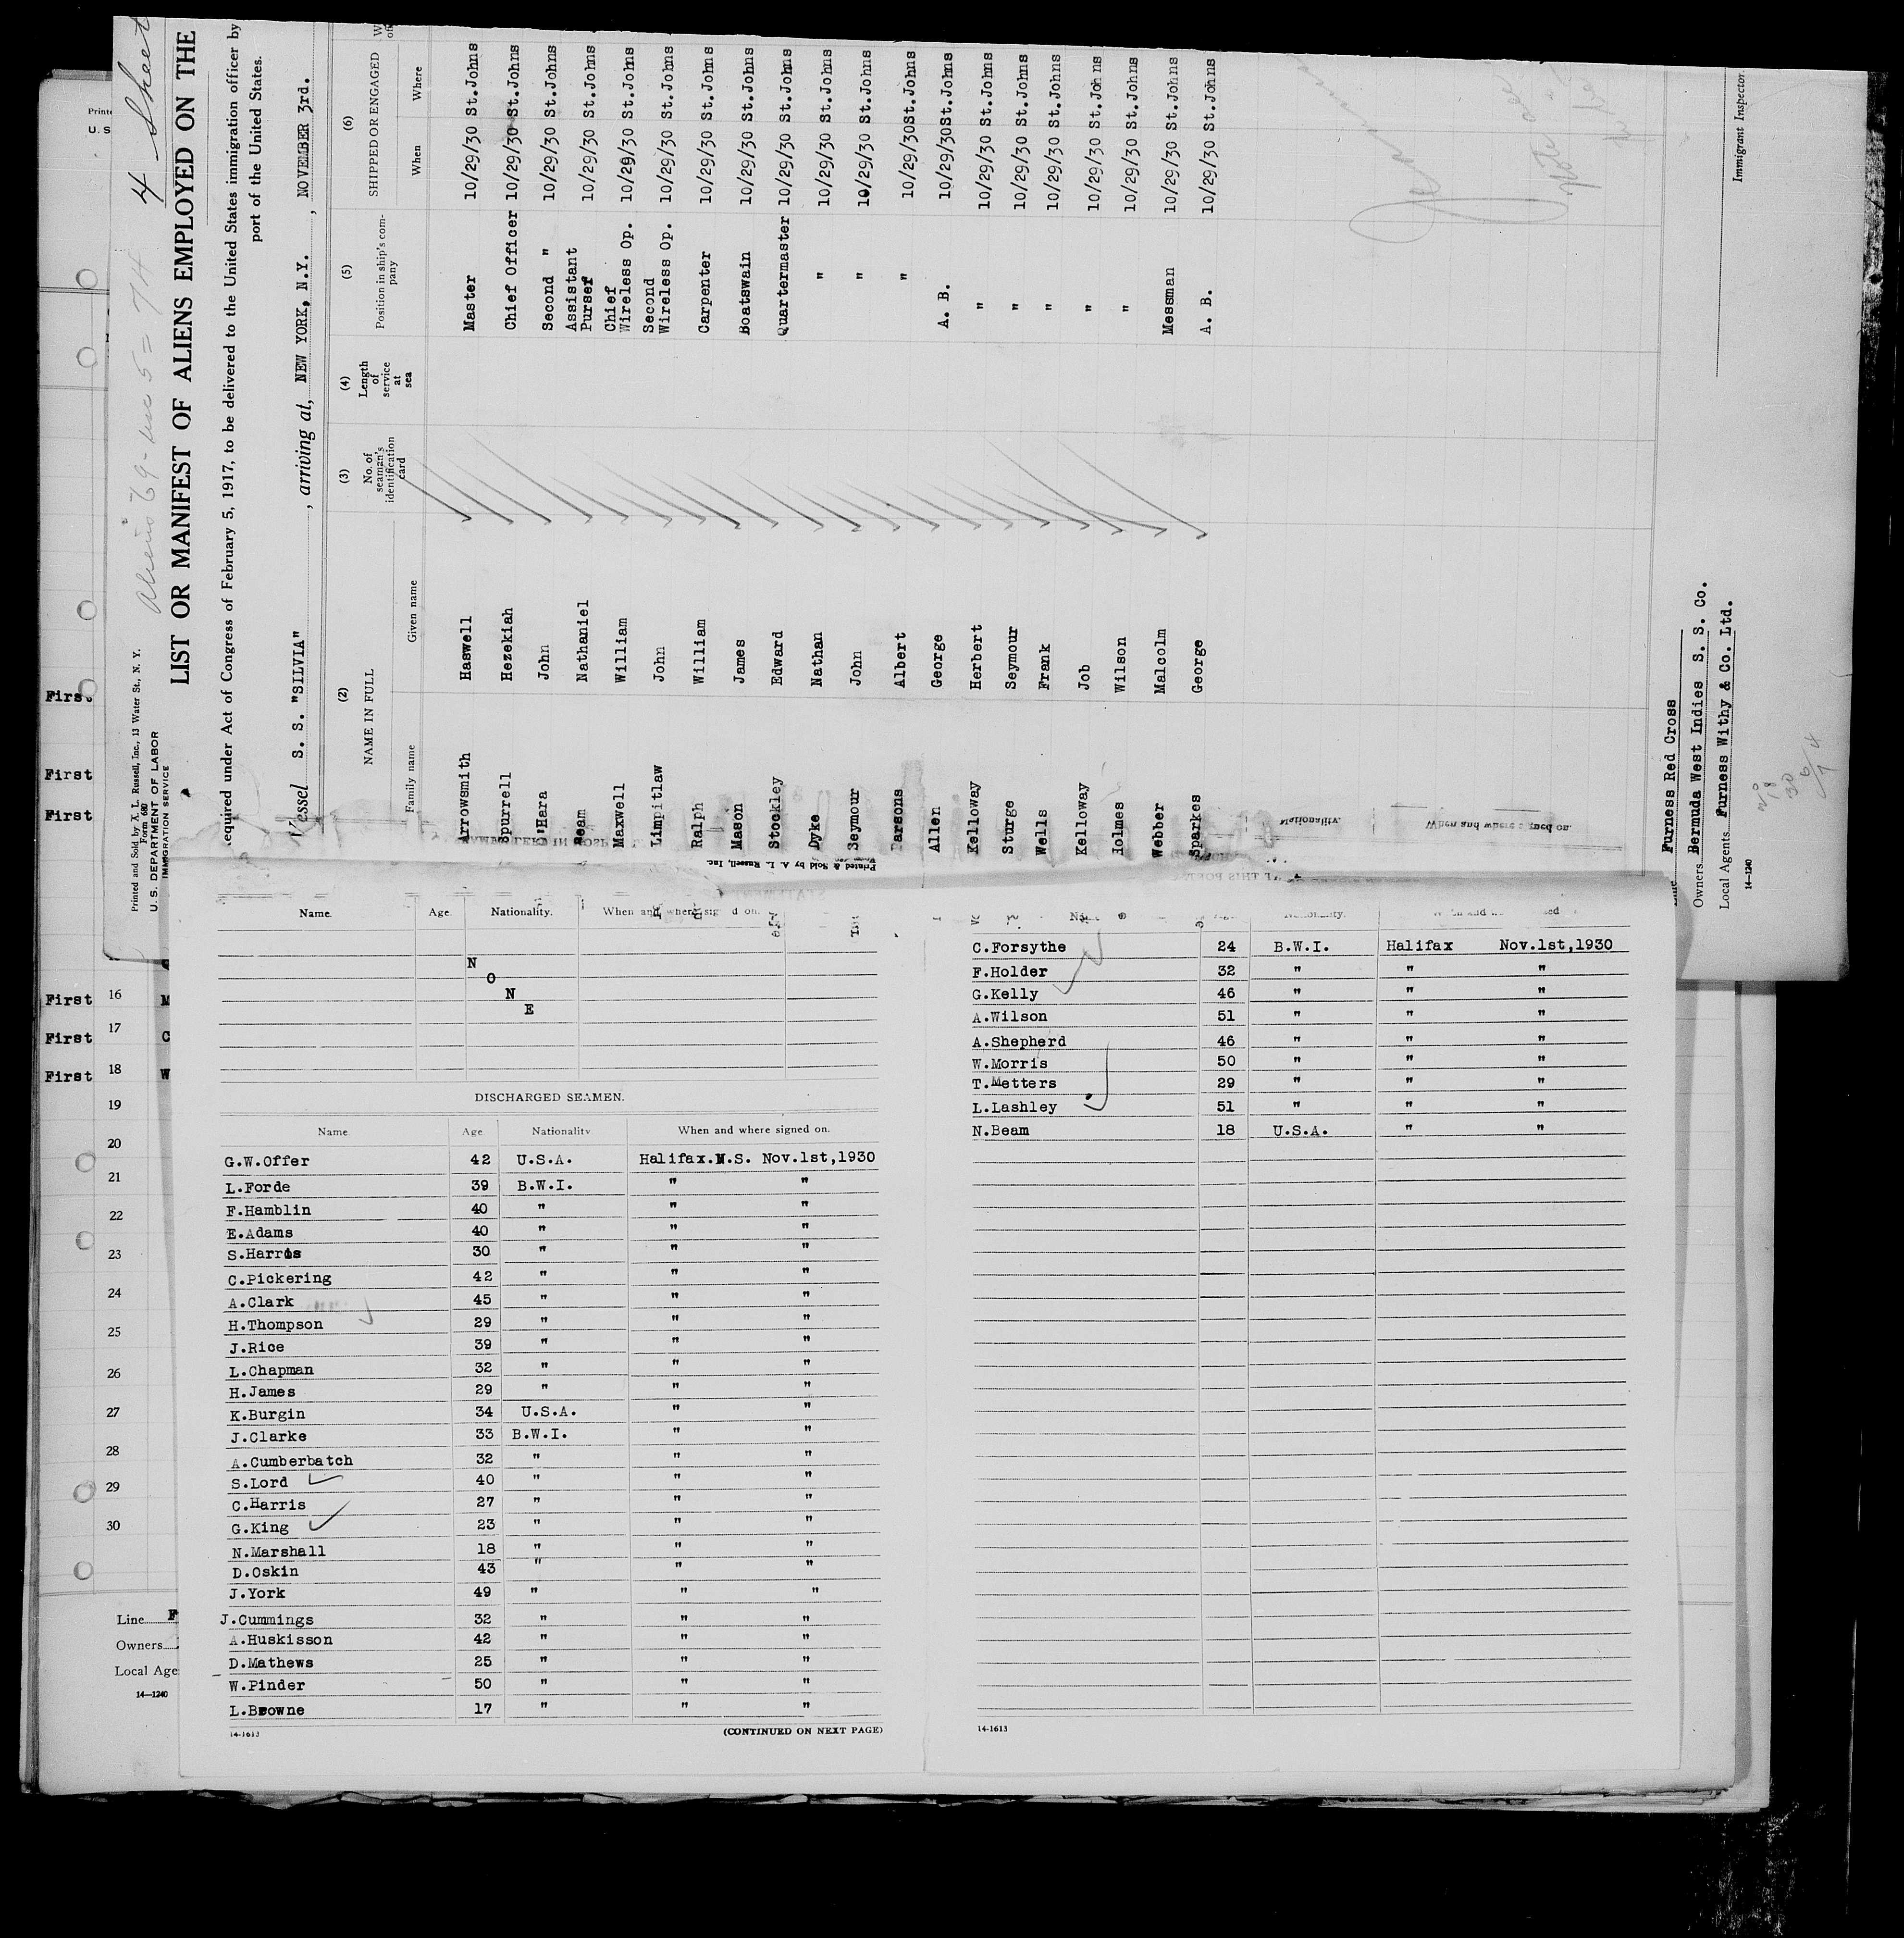 4 Sheet
Printed and Sold by X. L. Russell, Inc., 13 Water St., N. Y.
Form 680
U. S. DEPARTMENT OF LABOR
IMMIGRATION SERVICE
LIST OR MANIFEST OF ALIENS EMPLOYED ON THE
required under Act of Congress of February 5, 1917, to be delivered to the United States immigration officer by
port of the United States.
Vessel S. S. "SILVIA", arriving at, NEW YORK, N.Y., NOVEMBER 3rd.
(2) (3) (4) (5) (6)
NAME IN FULL No. of seaman's identification card Length of service at sea Position in ship's company SHIPPED OR ENGAGED
Family name Given name When Where
Arrowsmith Haswell Master 10/29/30 St.Johns
Spurrell Hezekiah Chief Officer 10/29/30 St.Johns
O'Hara John Second " 10/29/30 St.Johns
Beam Nathaniel Assistant Purser 10/29/30 St.Johns
Maxwell William Chief Wireless Op. 10/29/30 St.Johns
Limpitlaw John Second Wireless Op. 10/29/30 St.Johns
Ralph William Carpenter 10/29/30 St.Johns
Mason James Boatswain 10/29/30 St.Johns
Stockley Edward Quartermaster 10/29/30 St.Johns
Dyke Nathan " 10/29/30 St.Johns
Seymour John " 10/29/30 St.Johns
Parsons Albert " 10/29/30St.Johns
Allen George A. B. 10/29/30St.Johns
Kelloway Herbert " 10/29/30 St.Johns
Sturge Seymour " 10/29/30 St.Johns
Wells Frank " 10/29/30 St.Johns
Kelloway Job " 10/29/30 St.Johns
Holmes Wilson " 10/29/30 St.Johns
Webber Malcolm Messman 10/29/30 St.Johns
Sparkes George A. B. 10/29/30 St.Johns
Furness Red Cross
Owners Bermuda West Indies S. S. Co.
Local Agents Furness Withy & Co. Ltd.
14—1240
Immigrant Inspector.
Printed & Sold by A. L. Russell, Inc.
Name. Age. Nationality. When and where signed on.
N
O
N
E
DISCHARGED SEAMEN.
Name. Age. Nationality When and where signed on.
G.W.Offer 42 U.S.A. Halifax.N.S. Nov.1st,1930
L.Forde 39 B.W.I. " "
F.Hamblin 40 " " "
E.Adams 40 " " "
S.Harris 30 " " "
C.Pickering 42 " " "
A.Clark 45 " " "
H.Thompson 29 " " "
J.Rice 39 " " "
L.Chapman 32 " " "
H.James 29 " " "
K.Burgin 34 U.S.A. " "
J.Clarke 33 B.W.I. " "
A.Cumberbatch 32 " " "
S.Lord 40 " " "
C.Harris 27 " " "
G.King 23 " " "
N.Marshall 18 " " "
D.Oskin 43 " " "
J.York 49 " " "
J.Cummings 32 " " "
A.Huskisson 42 " " "
D.Mathews 25 " " "
W.Pinder 50 " " "
L.Browne 17 " " "
14-1613 (CONTINUED ON NEXT PAGE)
C.Forsythe 24 B.W.I. Halifax Nov.1st,1930
F.Holder 32 " " "
G.Kelly 46 " " "
A.Wilson 51 " " "
A.Shepherd 46 " " "
W.Morris 50 " " "
T.Metters 29 " " "
L.Lashley 51 " " "
N.Beam 18 U.S.A. " "
14-1613
U. S
First
First
First
First 16 M
First 17 C
First 18 W
19
20
21
22
23
24
25
26
27
28
29
30
Line F
Owners
Local Age
14—1240